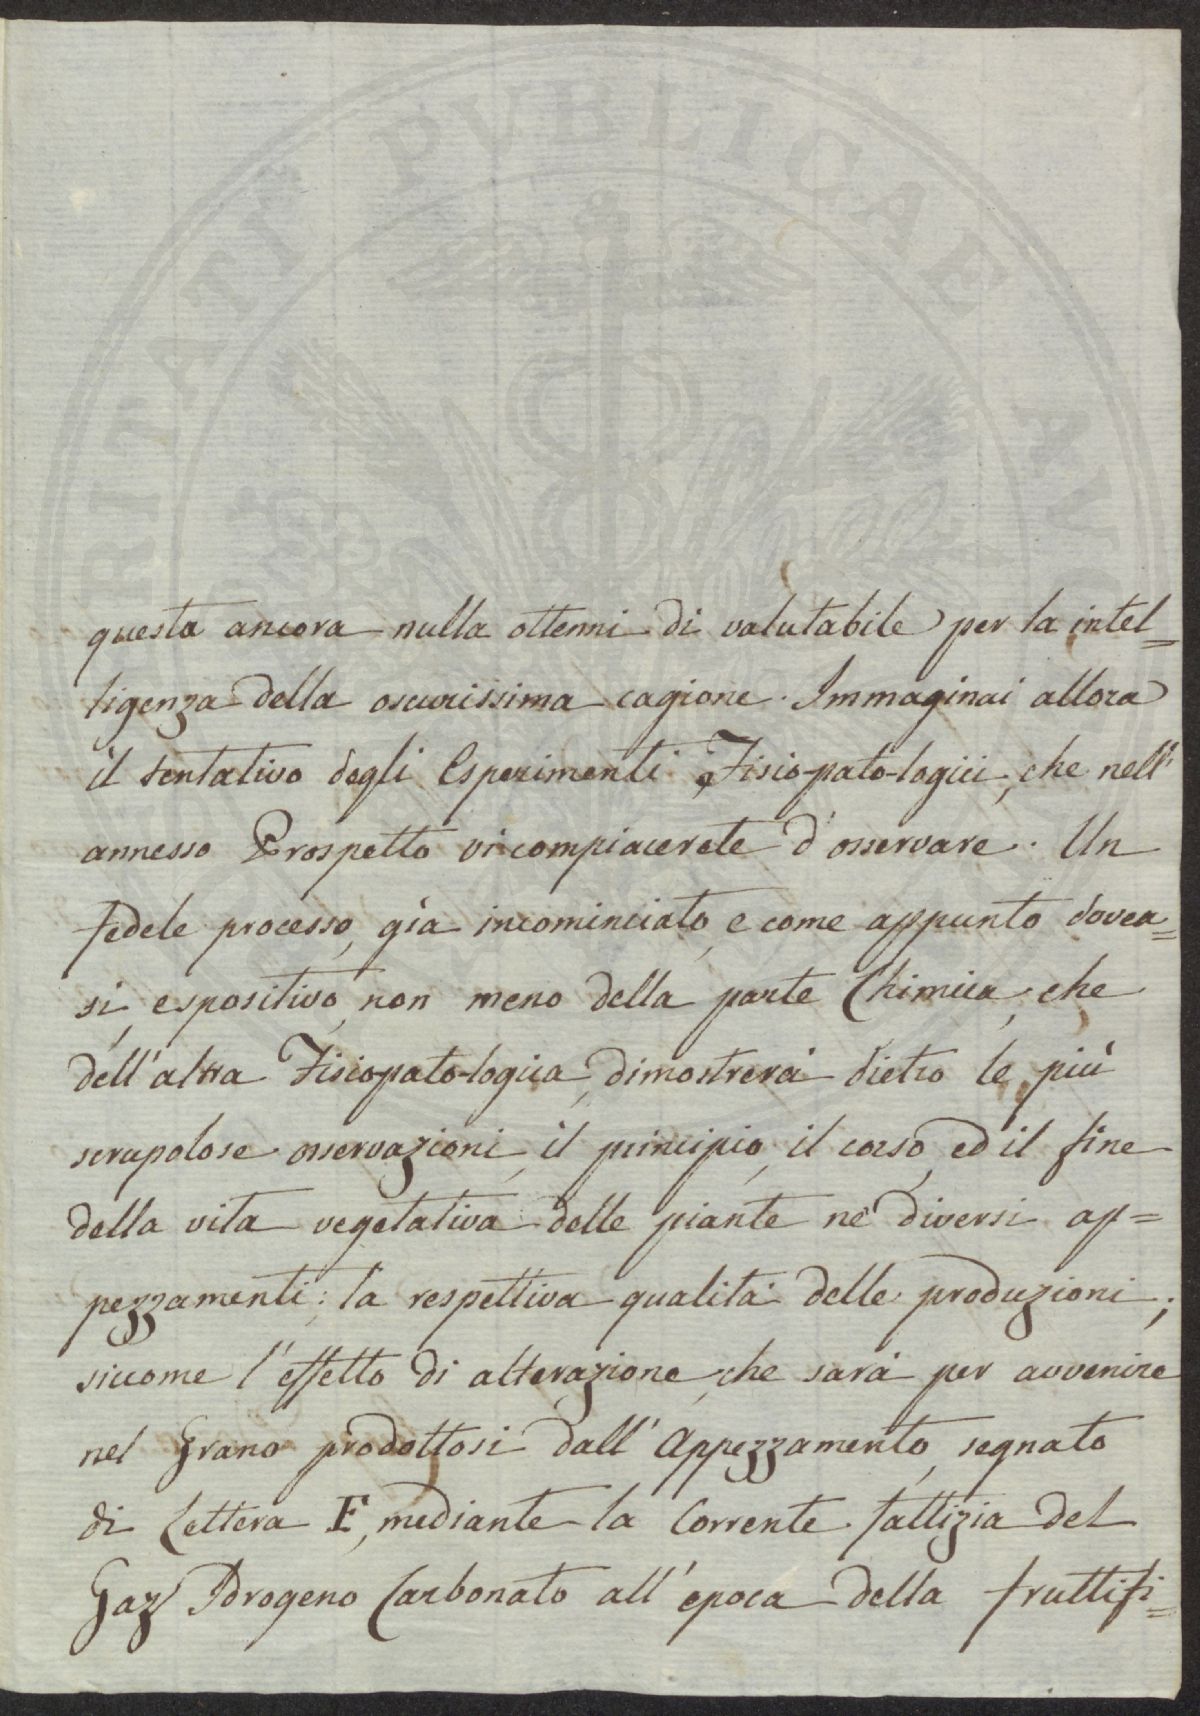 questa ancora nulla ottenni di valutabile per la intel=
ligenza della oscurissima cagione. Immaginai allora
il tentativo degli Esperimenti Fisio-pato-logici, che nell'
annesso Prospetto vi compiacerete d'osservare. Un
fedele processo, già incominciato, e come appunto dovea=
si, espositivo, non meno della parte Chimica, che
dell'altra Fisiopato-logica, dimostrerà dietro le più
scrupolose osservazioni, il principio, il corso, ed il fine
della vita vegetativa delle piante ne' diversi ap=
pezzamenti; la respettiva qualità delle produzioni;
siccome l'effetto di alterazione, che sarà per avvenire
nel Grano prodottosi dall'Appezzamento, segnato
di Lettera F, mediante la Corrente fattizia del
Gaz Idrogeno Carbonato all'epoca della fruttifi=